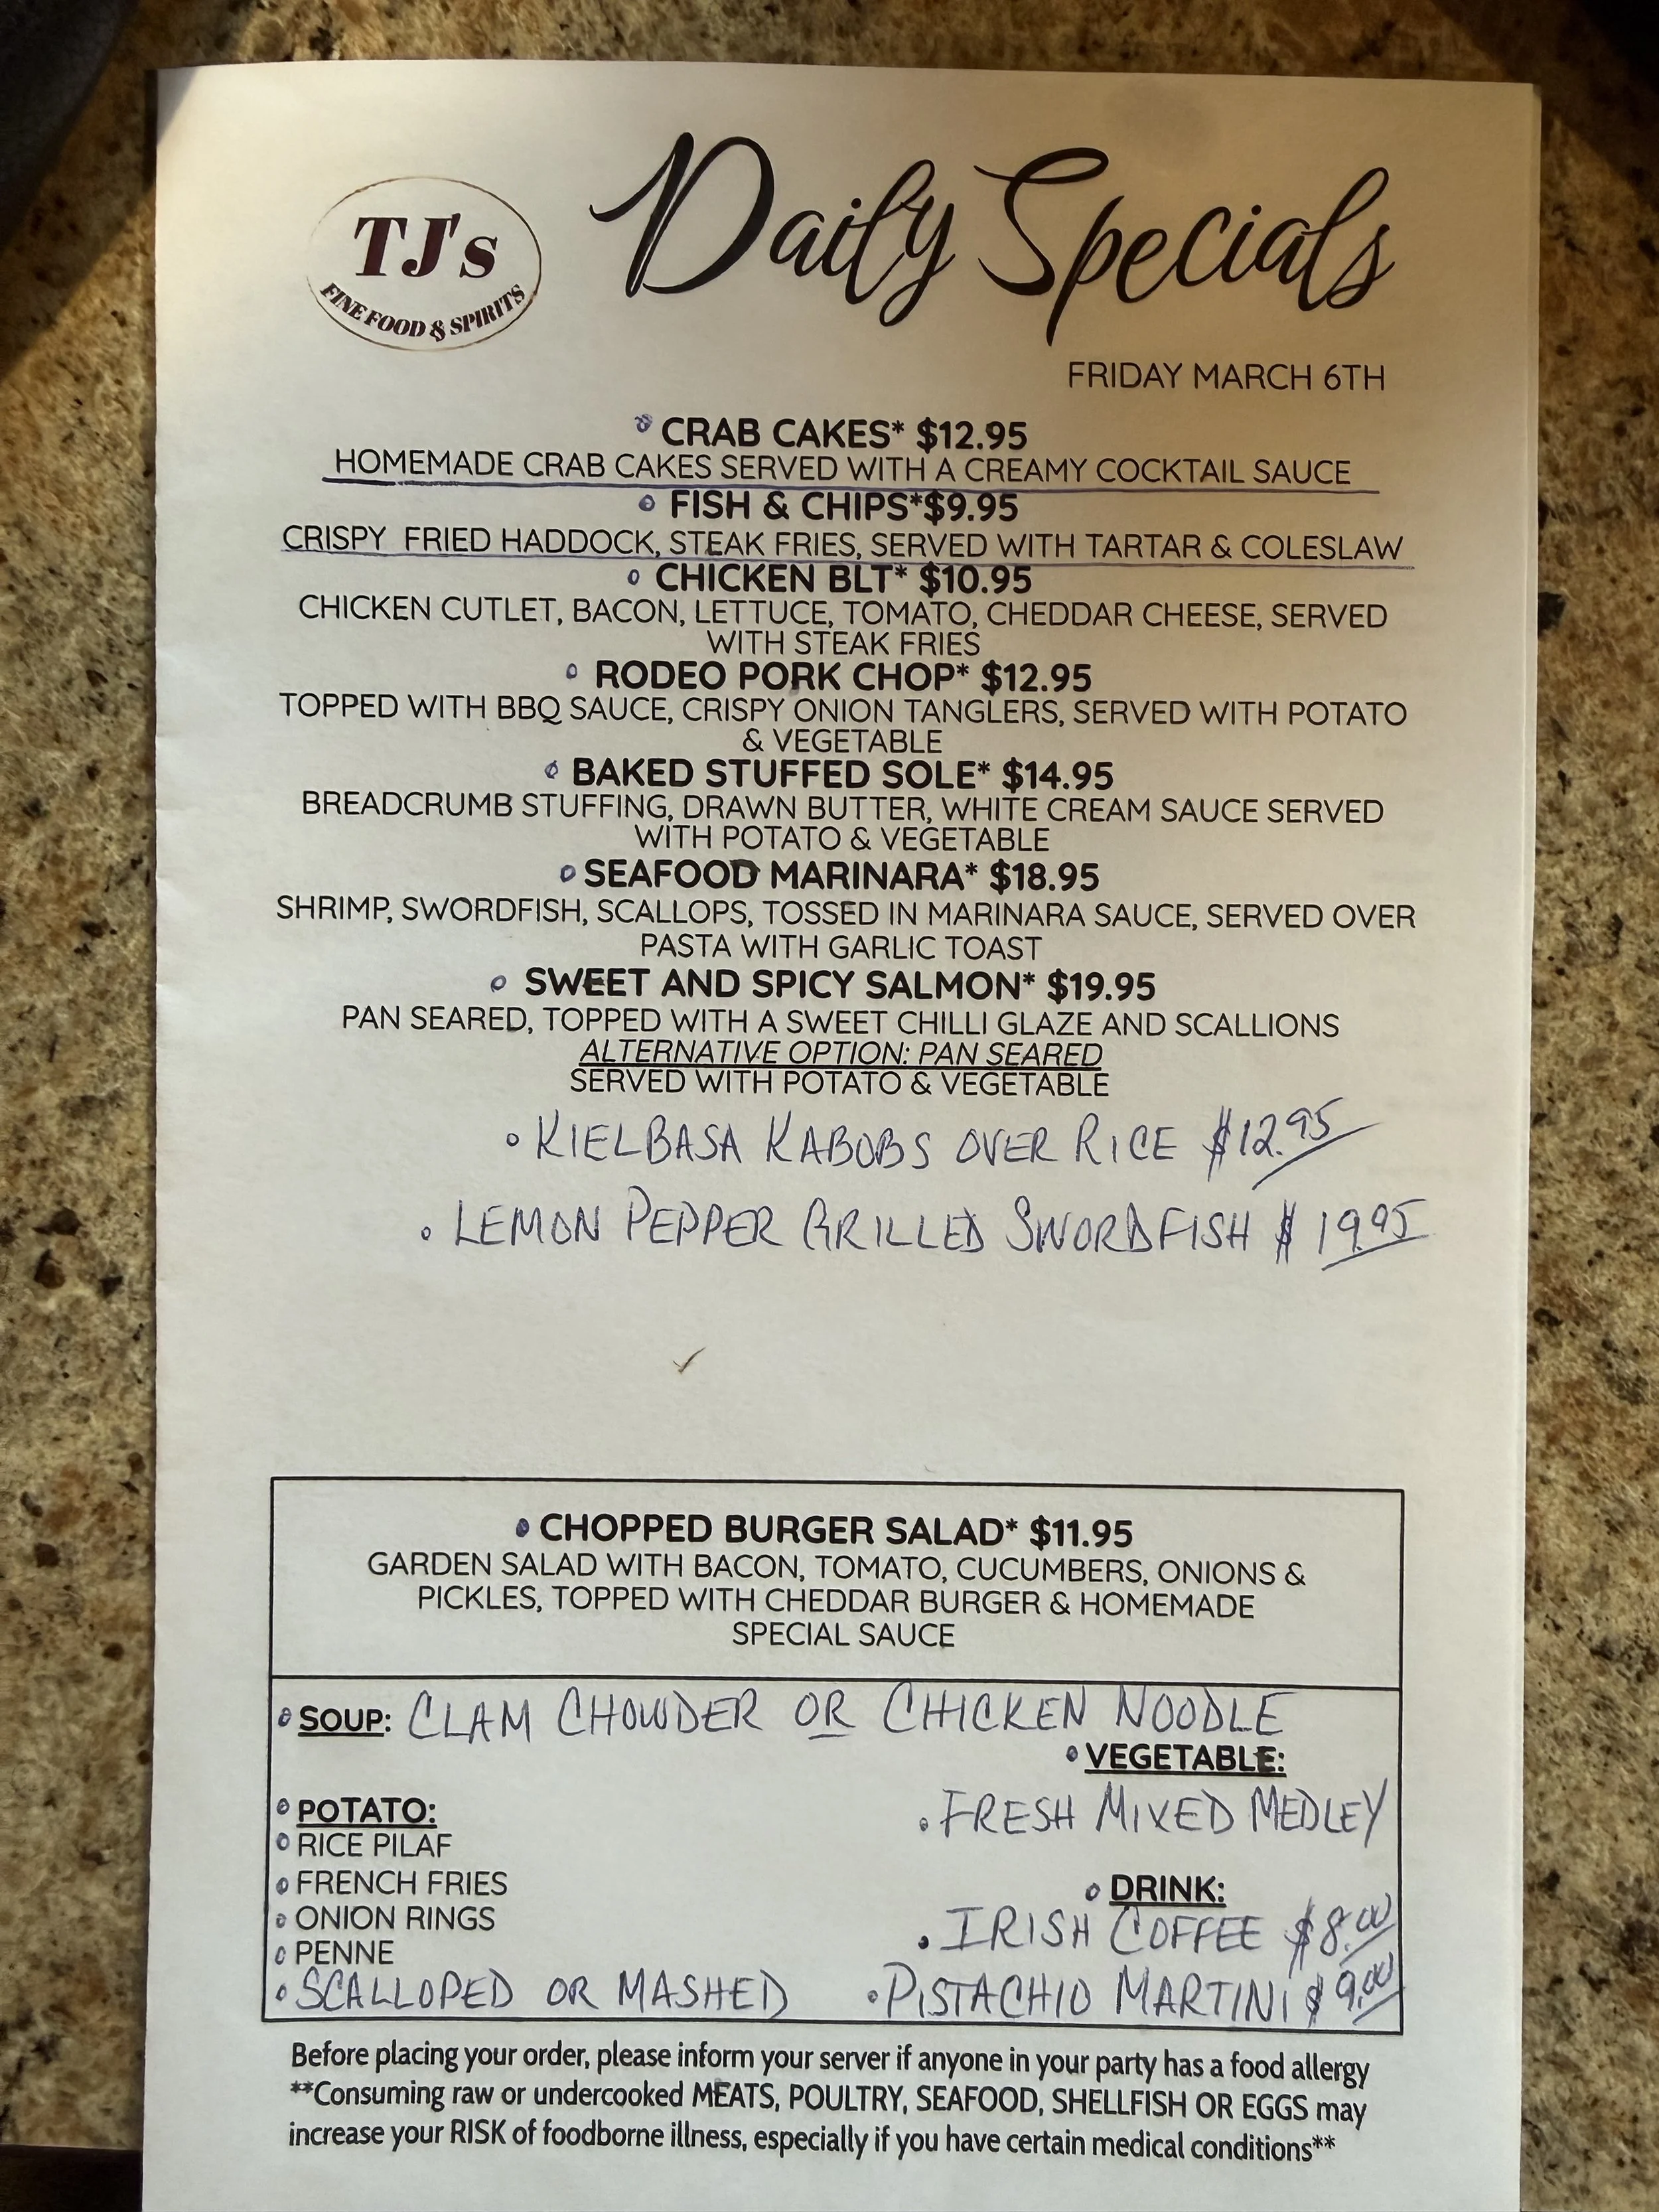 TJ's
FINE FOOD & SPIRITS
Daily Specials
FRIDAY MARCH 6TH
CRAB CAKES* $12.95
HOMEMADE CRAB CAKES SERVED WITH A CREAMY COCKTAIL SAUCE
FISH & CHIPS*$9.95
CRISPY FRIED HADDOCK, STEAK FRIES, SERVED WITH TARTAR & COLESLAW
CHICKEN BLT* $10.95
CHICKEN CUTLET, BACON, LETTUCE, TOMATO, CHEDDAR CHEESE, SERVED
WITH STEAK FRIES
RODEO PORK CHOP* $12.95
TOPPED WITH BBQ SAUCE, CRISPY ONION TANGLERS, SERVED WITH POTATO
& VEGETABLE
BAKED STUFFED SOLE* $14.95
BREADCRUMB STUFFING, DRAWN BUTTER, WHITE CREAM SAUCE SERVED
WITH POTATO & VEGETABLE
SEAFOOD MARINARA* $18.95
SHRIMP, SWORDFISH, SCALLOPS, TOSSED IN MARINARA SAUCE, SERVED OVER
PASTA WITH GARLIC TOAST
SWEET AND SPICY SALMON* $19.95
PAN SEARED, TOPPED WITH A SWEET CHILLI GLAZE AND SCALLIONS
ALTERNATIVE OPTION: PAN SEARED
SERVED WITH POTATO & VEGETABLE
• KIELBASA KABOBS OVER RICE $12.95
• LEMON PEPPER GRILLED SWORDFISH $19.95
• CHOPPED BURGER SALAD* $11.95
GARDEN SALAD WITH BACON, TOMATO, CUCUMBERS, ONIONS &
PICKLES, TOPPED WITH CHEDDAR BURGER & HOMEMADE
SPECIAL SAUCE
• SOUP: CLAM CHOWDER OR CHICKEN NOODLE
• VEGETABLE:
• FRESH MIXED MEDLEY
• POTATO:
• RICE PILAF
• FRENCH FRIES
• ONION RINGS
• PENNE
• SCALLOPED OR MASHED
• DRINK:
• IRISH COFFEE $8.00
• PISTACHIO MARTINI $9.00
Before placing your order, please inform your server if anyone in your party has a food allergy
**Consuming raw or undercooked MEATS, POULTRY, SEAFOOD, SHELLFISH OR EGGS may
increase your RISK of foodborne illness, especially if you have certain medical conditions**